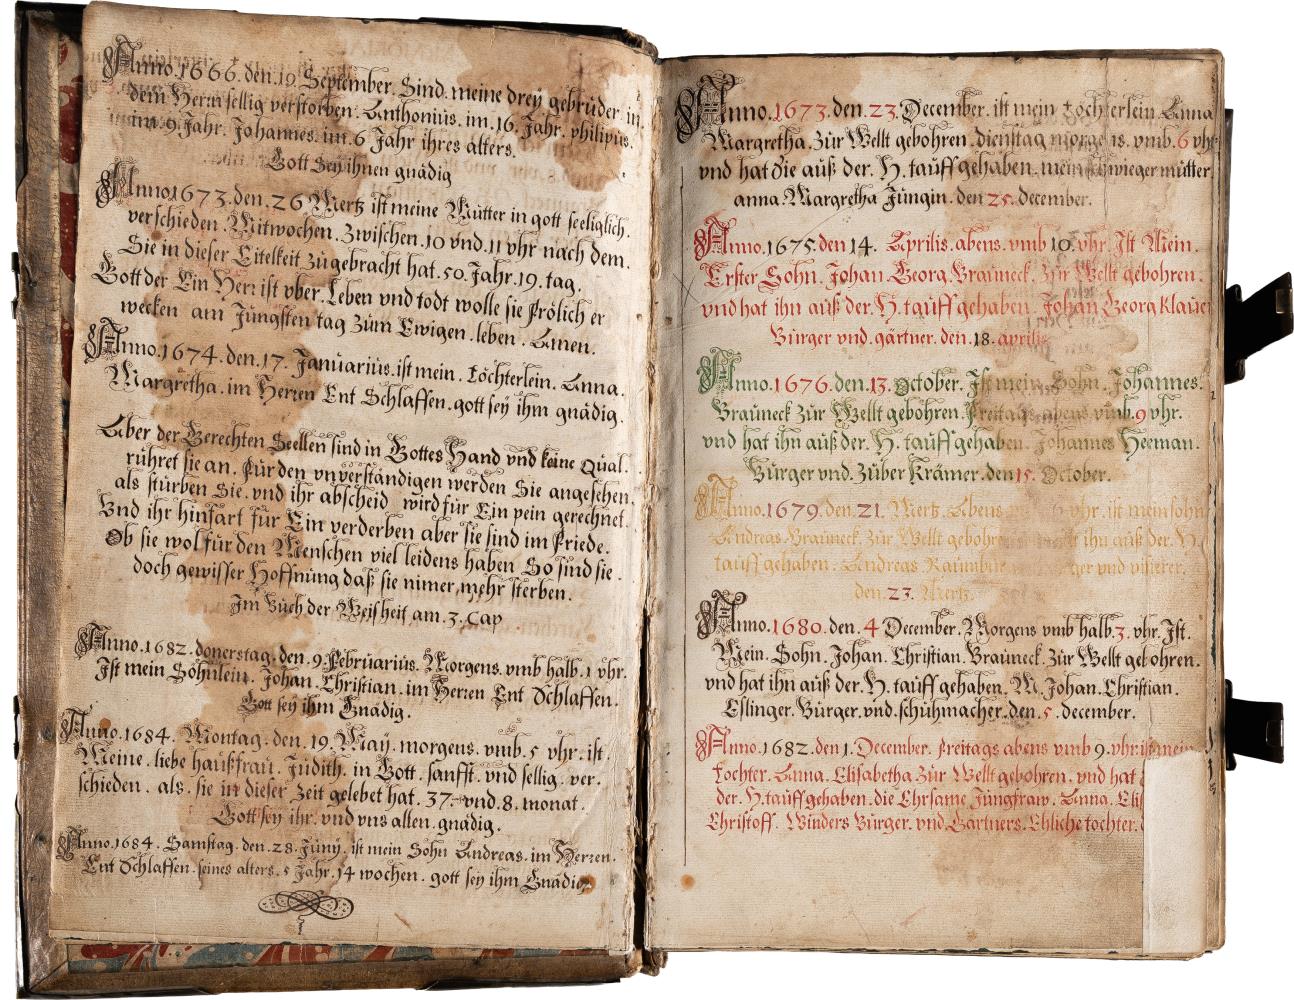 Anno.1666.den.19.September.Sind.meine dreÿ gebrüder.in.
dem Herrn sellig verstorben. Anthonius.im.16.Jahr.philipus.
im.9.Jahr.Johannes.im.6 Jahr ihres alters.
Gott Seÿ ihnen gnädig
Anno.1673.den.26 Mertz ist meine Mütter in gott seeliglich.
verschieden. Mitwochen.Zwischen.10 vnd.11 vhr nach dem.
Sie in dieser Eitelkeit zügebracht hat.50.Jahr.19.tag.
Gott der Ein Herr ist vber.Leben vnd todt wolle sie frölich er
wecken am Jüngsten tag zum Ewigen.leben.Amen.
Anno.1674.den.17.Januarius.ist mein.Töchterlein.Anna.
Margretha.im Herren Ent Schlaffen.gott seÿ ihm gnädig.
Aber der Gerechten Seellen sind in Gottes Hand vnd keine Qüal.
rühret sie an.für den vnverständigen werden Sie angesehen.
als stürben Sie.vnd ihr abscheid wird für Ein pein gerechnet.
Vnd ihr hinfart für Ein verderben aber sie sind im friede.
Ob sie wol für den Menschen viel leidens haben So sind sie.
doch gewisser Hoffnüng daß sie nimer mehr sterben.
Im Büch der Weisheit am.3.Cap
Anno.1682.donerstag.den.9.februarius.Morgens.vmb halb.1 vhr.
Ist mein Söhnlein.Johan.Christian.im Herren Ent Schlaffen.
Gott seÿ ihm Gnädig.
Anno.1684.Montag.den.19.Maÿ.morgens.vmb.5 vhr.ist.
Meine.liebe haußfrau.Judith.in Gott.sanfft.vnd sellig.ver.
schieden.als.sie in dieser Zeit gelebet hat.37.vnd.8.monat.
Gott seÿ ihr.vnd vns allen.gnädig.
Anno.1684.Samstag.den.28.Junÿ.ist mein Sohn Andreas.im Herren.
Ent Schlaffen.seines alters.5 Jahr.14 wochen.gott seÿ ihm Gnädig
Anno.1673.den.23.December.ist mein tochterlein.Anna
Margretha.Zür Wellt gebohren.dienstag morgens.vmb.6 vhr
vnd hat Sie auß der.H.tauff gehaben.mein schwieger mütter
anna.Margretha Jüngin.den 25.december.
Anno.1675.den 14.Aprilis.abens.vmb 10.vhr.Ist Mein.
Erster Sohn.Johan.Georg.Braüneck.Zür Wellt gebohren.
vnd hat ihn auß der.H.tauff gehaben.Johan Georg Klauer
Bürger vnd.gärtner.den.18.aprilis
Anno.1676.den.13.October.Ist mein Sohn.Johannes.
Braüneck Zür Wellt gebohren.freitags abens vmb.9 vhr.
vnd hat ihn auß der.H.tauff gehaben.Johannes Heeman.
Bürger vnd.Züber Krämer.den 15.October.
Anno.1679.den.21.Mertz.Abens 6 vhr.ist mein sohn
Andreas.Braüneck.Zür Wellt gebohren ihn auß der.H.
tauff gehaben.Andreas vnd
den.23.Mertz.
Anno.1680.den.4 December.Morgens vmb halb.3.vhr.Ist.
Mein.Sohn.Johan.Christian.Braüneck.Zür Wellt gebohren.
vnd hat ihn auß der.H.tauff gehaben.M.Johan.Christian.
Eslinger.Bürger.vnd.schühmacher.den.5.december.
Anno.1682.den 1.December.freitags abens vmb 9.vhr ist mein
tochter.Anna.Elisabetha Zür Wellt gebohren.vnd hat
der.H.tauff gehaben.die Ehrsame Jüngfraw.Anna.Elis
Christoff.Winders Bürger.vnd.Gartners.Ehliche tochter.